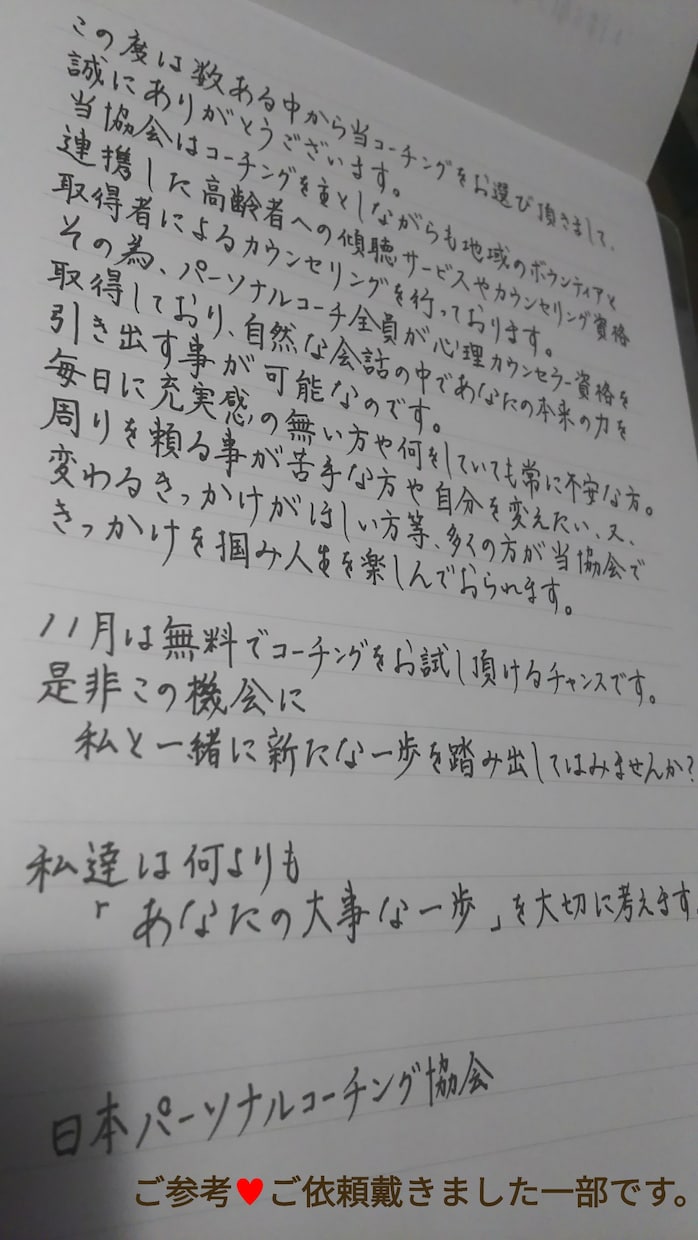 この度は数ある中から当コーチングをお選び頂きまして、
誠にありがとうございます。
当協会はコーチングを主としながらも地域のボランティアと
連携した高齢者への傾聴サービスやカウンセリング資格
取得者によるカウンセリングを行っております。
その為、パーソナルコーチ全員が心理カウンセラー資格を
取得しており、自然な会話の中であなたの本来の力を
引き出す事が可能なのです。
毎日に充実感の無い方や何をしていても常に不安な方。
周りを頼る事が苦手な方や自分を変えたい、又、
変わるきっかけがほしい方等、多くの方が当協会で
きっかけを掴み人生を楽しんでおられます。
11月は無料でコーチングをお試し頂けるチャンスです。
是非この機会に
私と一緒に新たな一歩を踏み出してはみませんか?
私達は何よりも
「あなたの大事な一歩」を大切に考えます。
日本パーソナルコーチング協会
ご参考♥ご依頼戴きました一部です。